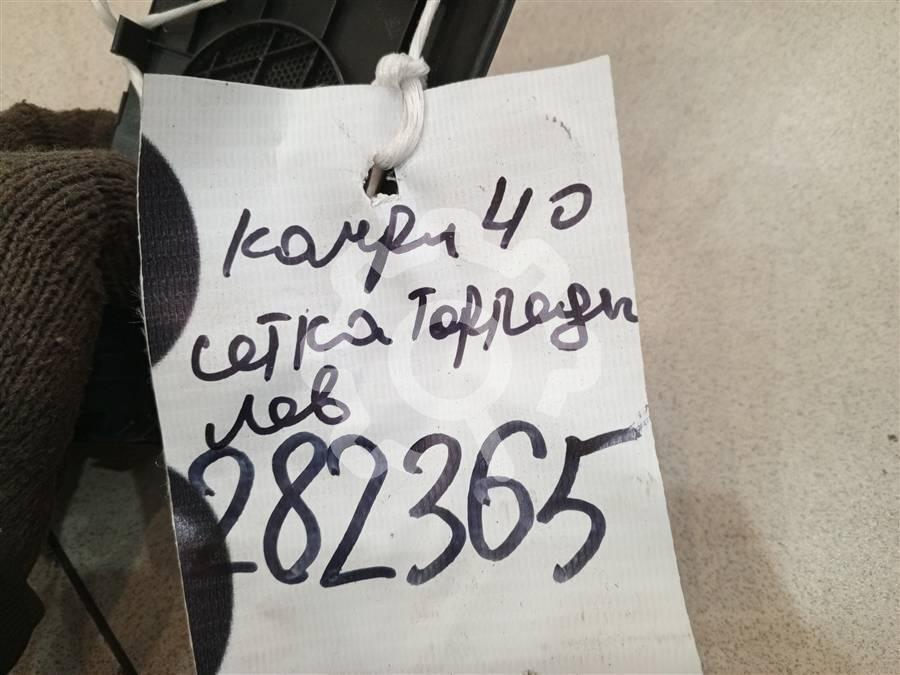 камри 40
сетка Торпеды
лев
282365